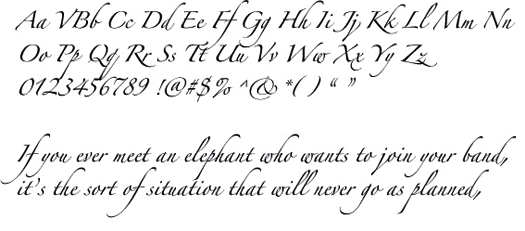 Aa VBb Cc Dd Ee Ff Gg Hh Ii Jj Kk Ll Mm Nn
Oo Pp Qq Rr Ss Tt Uu Vv Ww Xx Yy Zz
0123456789 !@#$% ^& *( ) “ ”
If you ever meet an elephant who wants to join your band,
it's the sort of situation that will never go as planned,